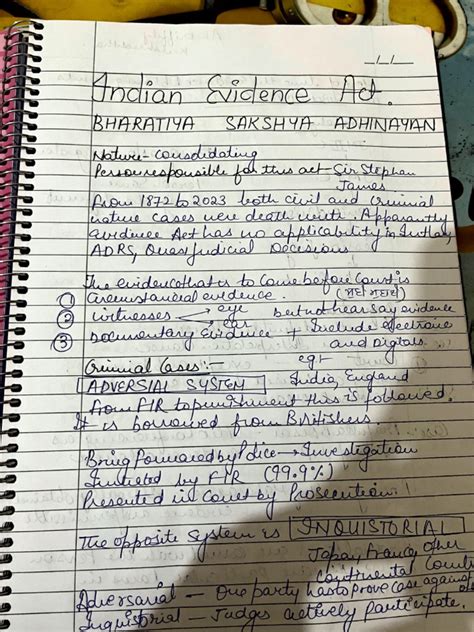 Indian Evidence Act.
BHARATIYA SAKSHYA ADHINAYAN
Nature - consolidating
Person responsible for this act - Sir Stephan
James
From 1872 to 2023 both civil and criminal
nature cases were death with. Apparantly
evidence Act has no applicability in
ADRs, Quasi Judicial Decisions
The evidence that is to come before Court is
① Circumstancial evidence.
② witnesses → eye but not hear say evidence
→ ear
③ Documentary Evidence + Include electronic
and Digitals.
Criminal Cases :-
eg:-
ADVERSIAL SYSTEM India, England
from FIR to punishment this is followed.
It is borrowed from Britishers
Being Powered by Police → Investigation
Initiated by FIR (99.9%)
Presented in Court by Prosecution
The opposite system is INQUISTORIAL
Japan, France, other
continental
Adversarial - One party has to prove case against
Inquistorial - Judges actively participate.